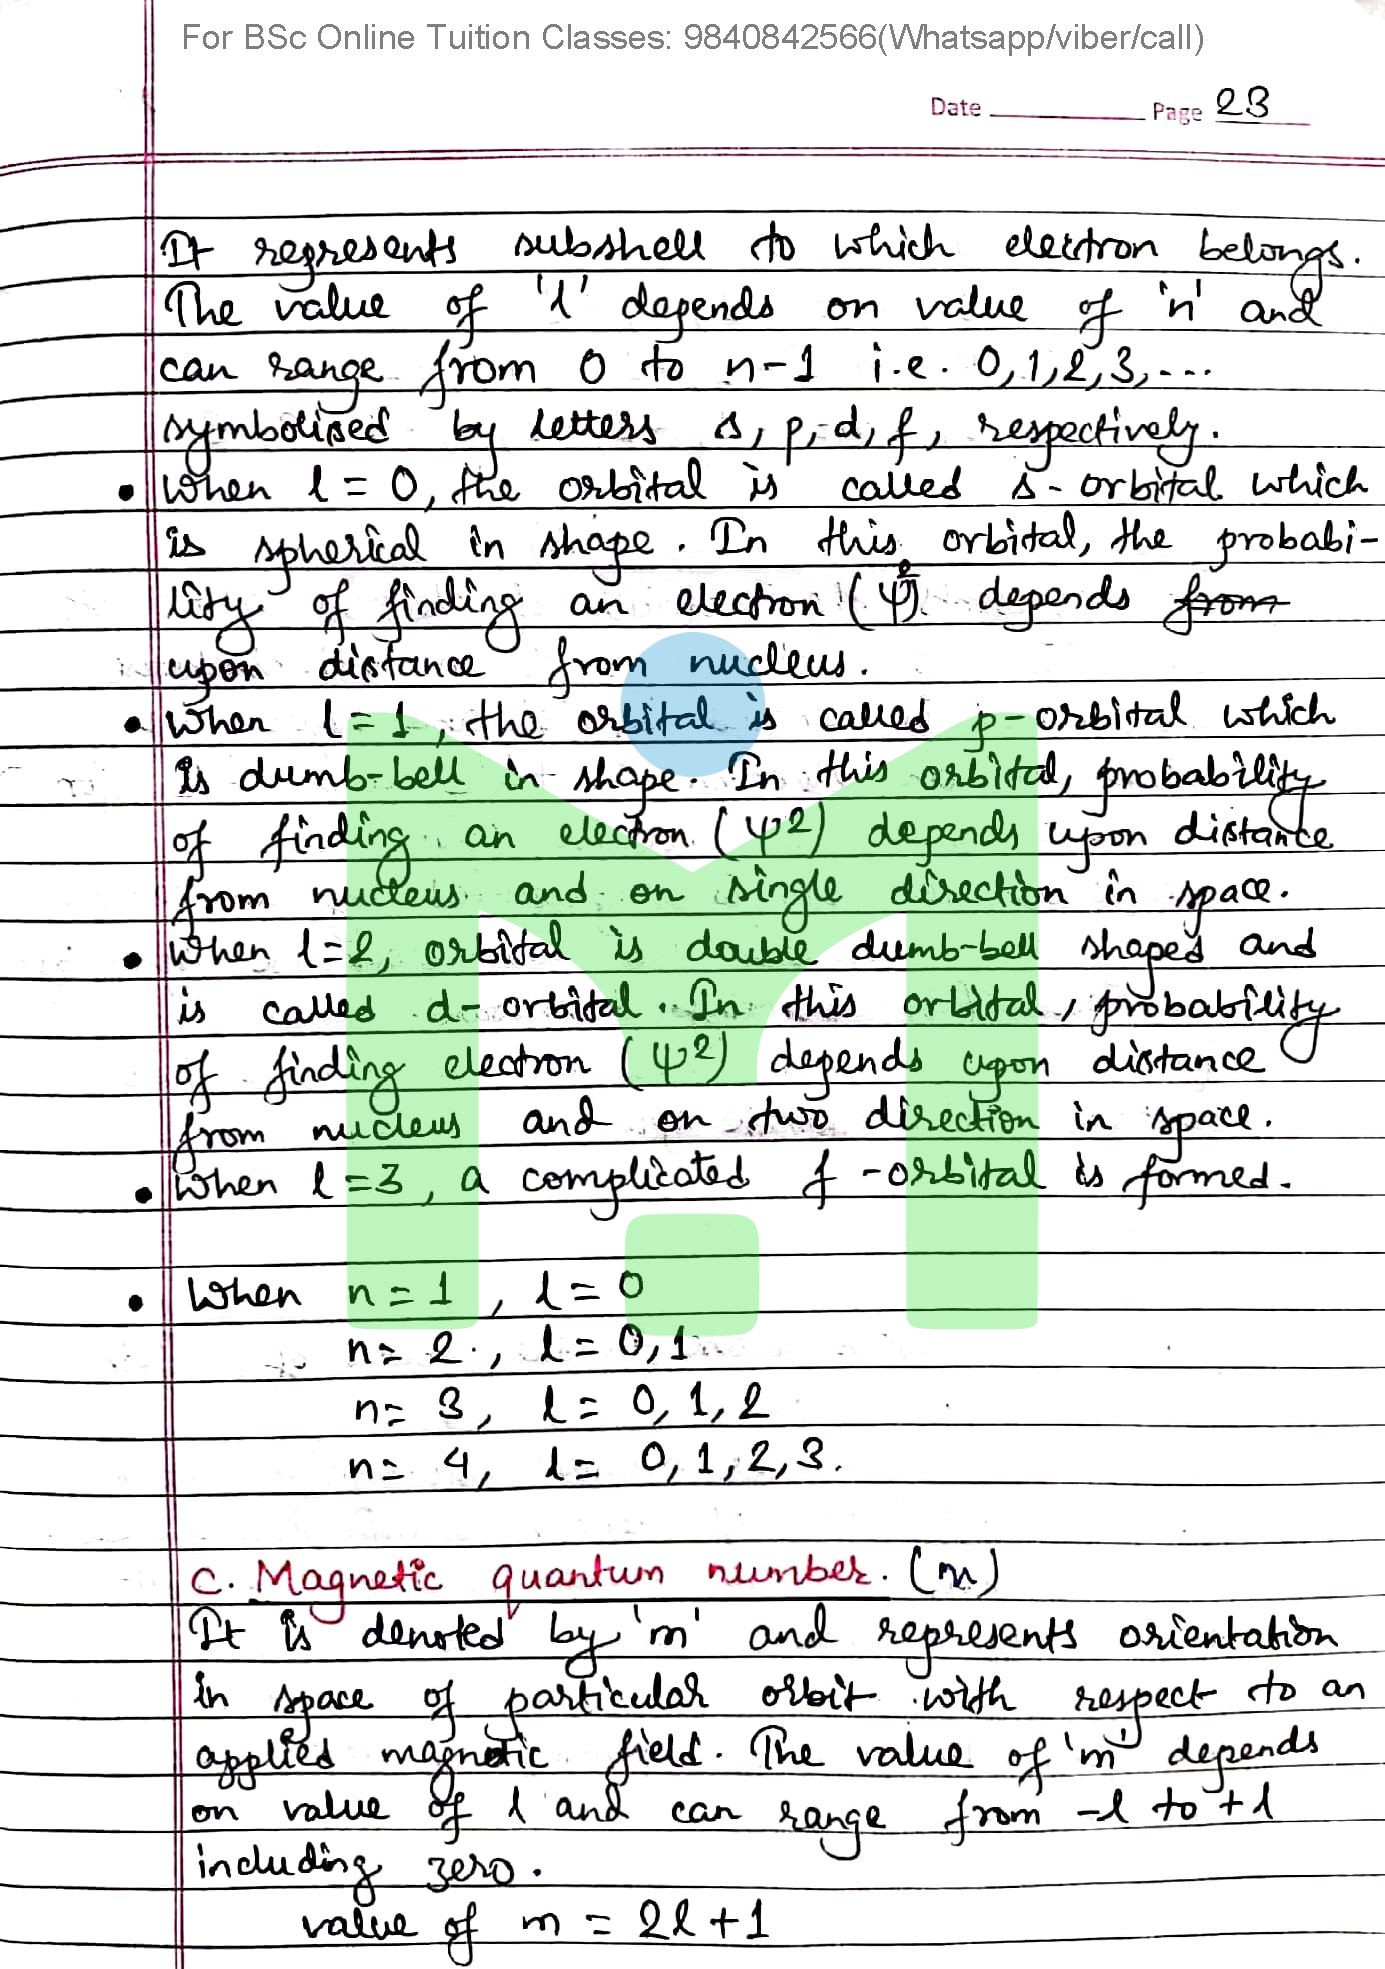 For BSc Online Tuition Classes: 9840842566(Whatsapp/viber/call)
Date Page 23
It represents subshell to which electron belongs.
The value of 'l' depends on value of 'n' and
can range from 0 to n-1 i.e. 0,1,2,3,...
symbolised by letters s, p, d, f, respectively.
• When l = 0, the orbital is called s-orbital which
is spherical in shape. In this orbital, the probabi-
lity of finding an electron (ψ²) depends from
upon distance from nucleus.
• When l=1, the orbital is called p-orbital which
is dumb-bell in shape. In this orbital, probability
of finding an electron (ψ²) depends upon distance
from nucleus and on single direction in space.
• When l=2, orbital is double dumb-bell shaped and
is called d-orbital. In this orbital, probability
of finding electron (ψ²) depends upon distance
from nucleus and on two direction in space.
• When l=3, a complicated f-orbital is formed.
• When n=1, l=0
n=2, l=0,1
n=3, l=0,1,2
n=4, l=0,1,2,3.
C. Magnetic quantum number. (m)
It is denoted by 'm' and represents orientation
in space of particular orbit with respect to an
applied magnetic field. The value of 'm' depends
on value of l and can range from -l to +l
including zero.
value of m = 2l+1